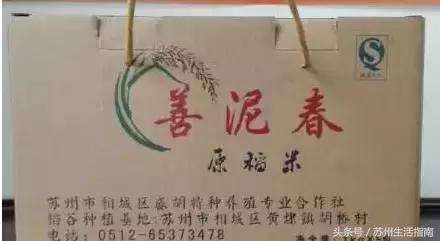 善泥春
原稻米
苏州市相城区盛胡特种养殖专业合作社
稻谷种植基地:苏州市相城区黄埭镇胡桥村
电话:0512-65373478
头条号/苏州生活指南